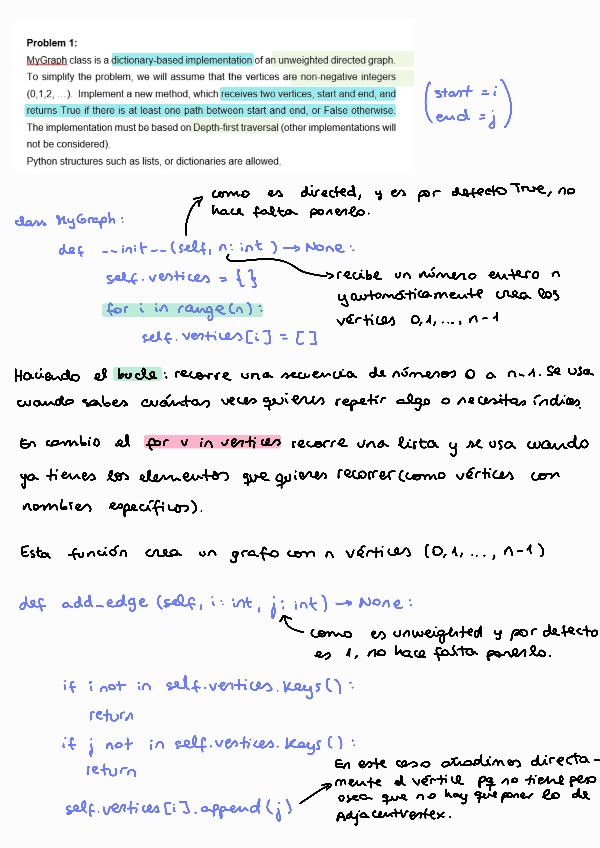 Problem 1:
MyGraph class is a dictionary-based implementation of an unweighted directed graph.
To simplify the problem, we will assume that the vertices are non-negative integers
(0,1,2, …). Implement a new method, which receives two vertices, start and end, and
returns True if there is at least one path between start and end, or False otherwise.
The implementation must be based on Depth-first traversal (other implementations will
not be considered).
Python structures such as lists, or dictionaries are allowed.
(start = i
end = j)
como es directed, y es por defecto True, no
hace falta ponerlo.
class MyGraph:
def __init__(self, n: int) → None:
self.vertices = {}
for i in range(n):
self.vertices[i] = []
recibe un número entero n
y automáticamente crea los
vértices 0, 1, ..., n-1
Haciendo el bucle: recorre una secuencia de números 0 a n-1. Se usa
cuando sabes cuántas veces quieres repetir algo o necesitas índices.
En cambio el for v in vertices recorre una lista y se usa cuando
ya tienes los elementos que quieres recorrer (como vértices con
nombres específicos).
Esta función crea un grafo con n vértices (0, 1, ..., n-1)
def add_edge (self, i: int, j: int) → None:
como es unweighted y por defecto
es 1, no hace falta ponerlo.
if i not in self.vertices.keys():
return
if j not in self.vertices.keys():
return
self.vertices[i].append(j)
En este caso añadimos directa-
mente el vértice pq no tiene peso
osea que no hay que poner lo de
AdjacentVertex.